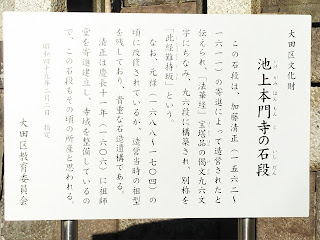 大田区文化財
池上本門寺の石段
いけ がみ ほん もん じ いし だん
この石段は、加藤清正(一五六二~
一六一一)の寄進によって造営されたと
伝えられ、「法華経」宝塔品の偈文九六文
字にちなみ、九六段に構築され、別称を
「此経難持坂」という。
なお、元禄(一六八八~一七〇四)の
頃に改修されているが、造営当時の祖型
を残しており、貴重な石造遺構である。
清正は慶長十一年(一六〇六)に祖師
堂を寄進建立し、寺域を整備しているの
で、この石段もその頃の所産と思われる。
昭和四十九年二月二日 指定
大田区教育委員会